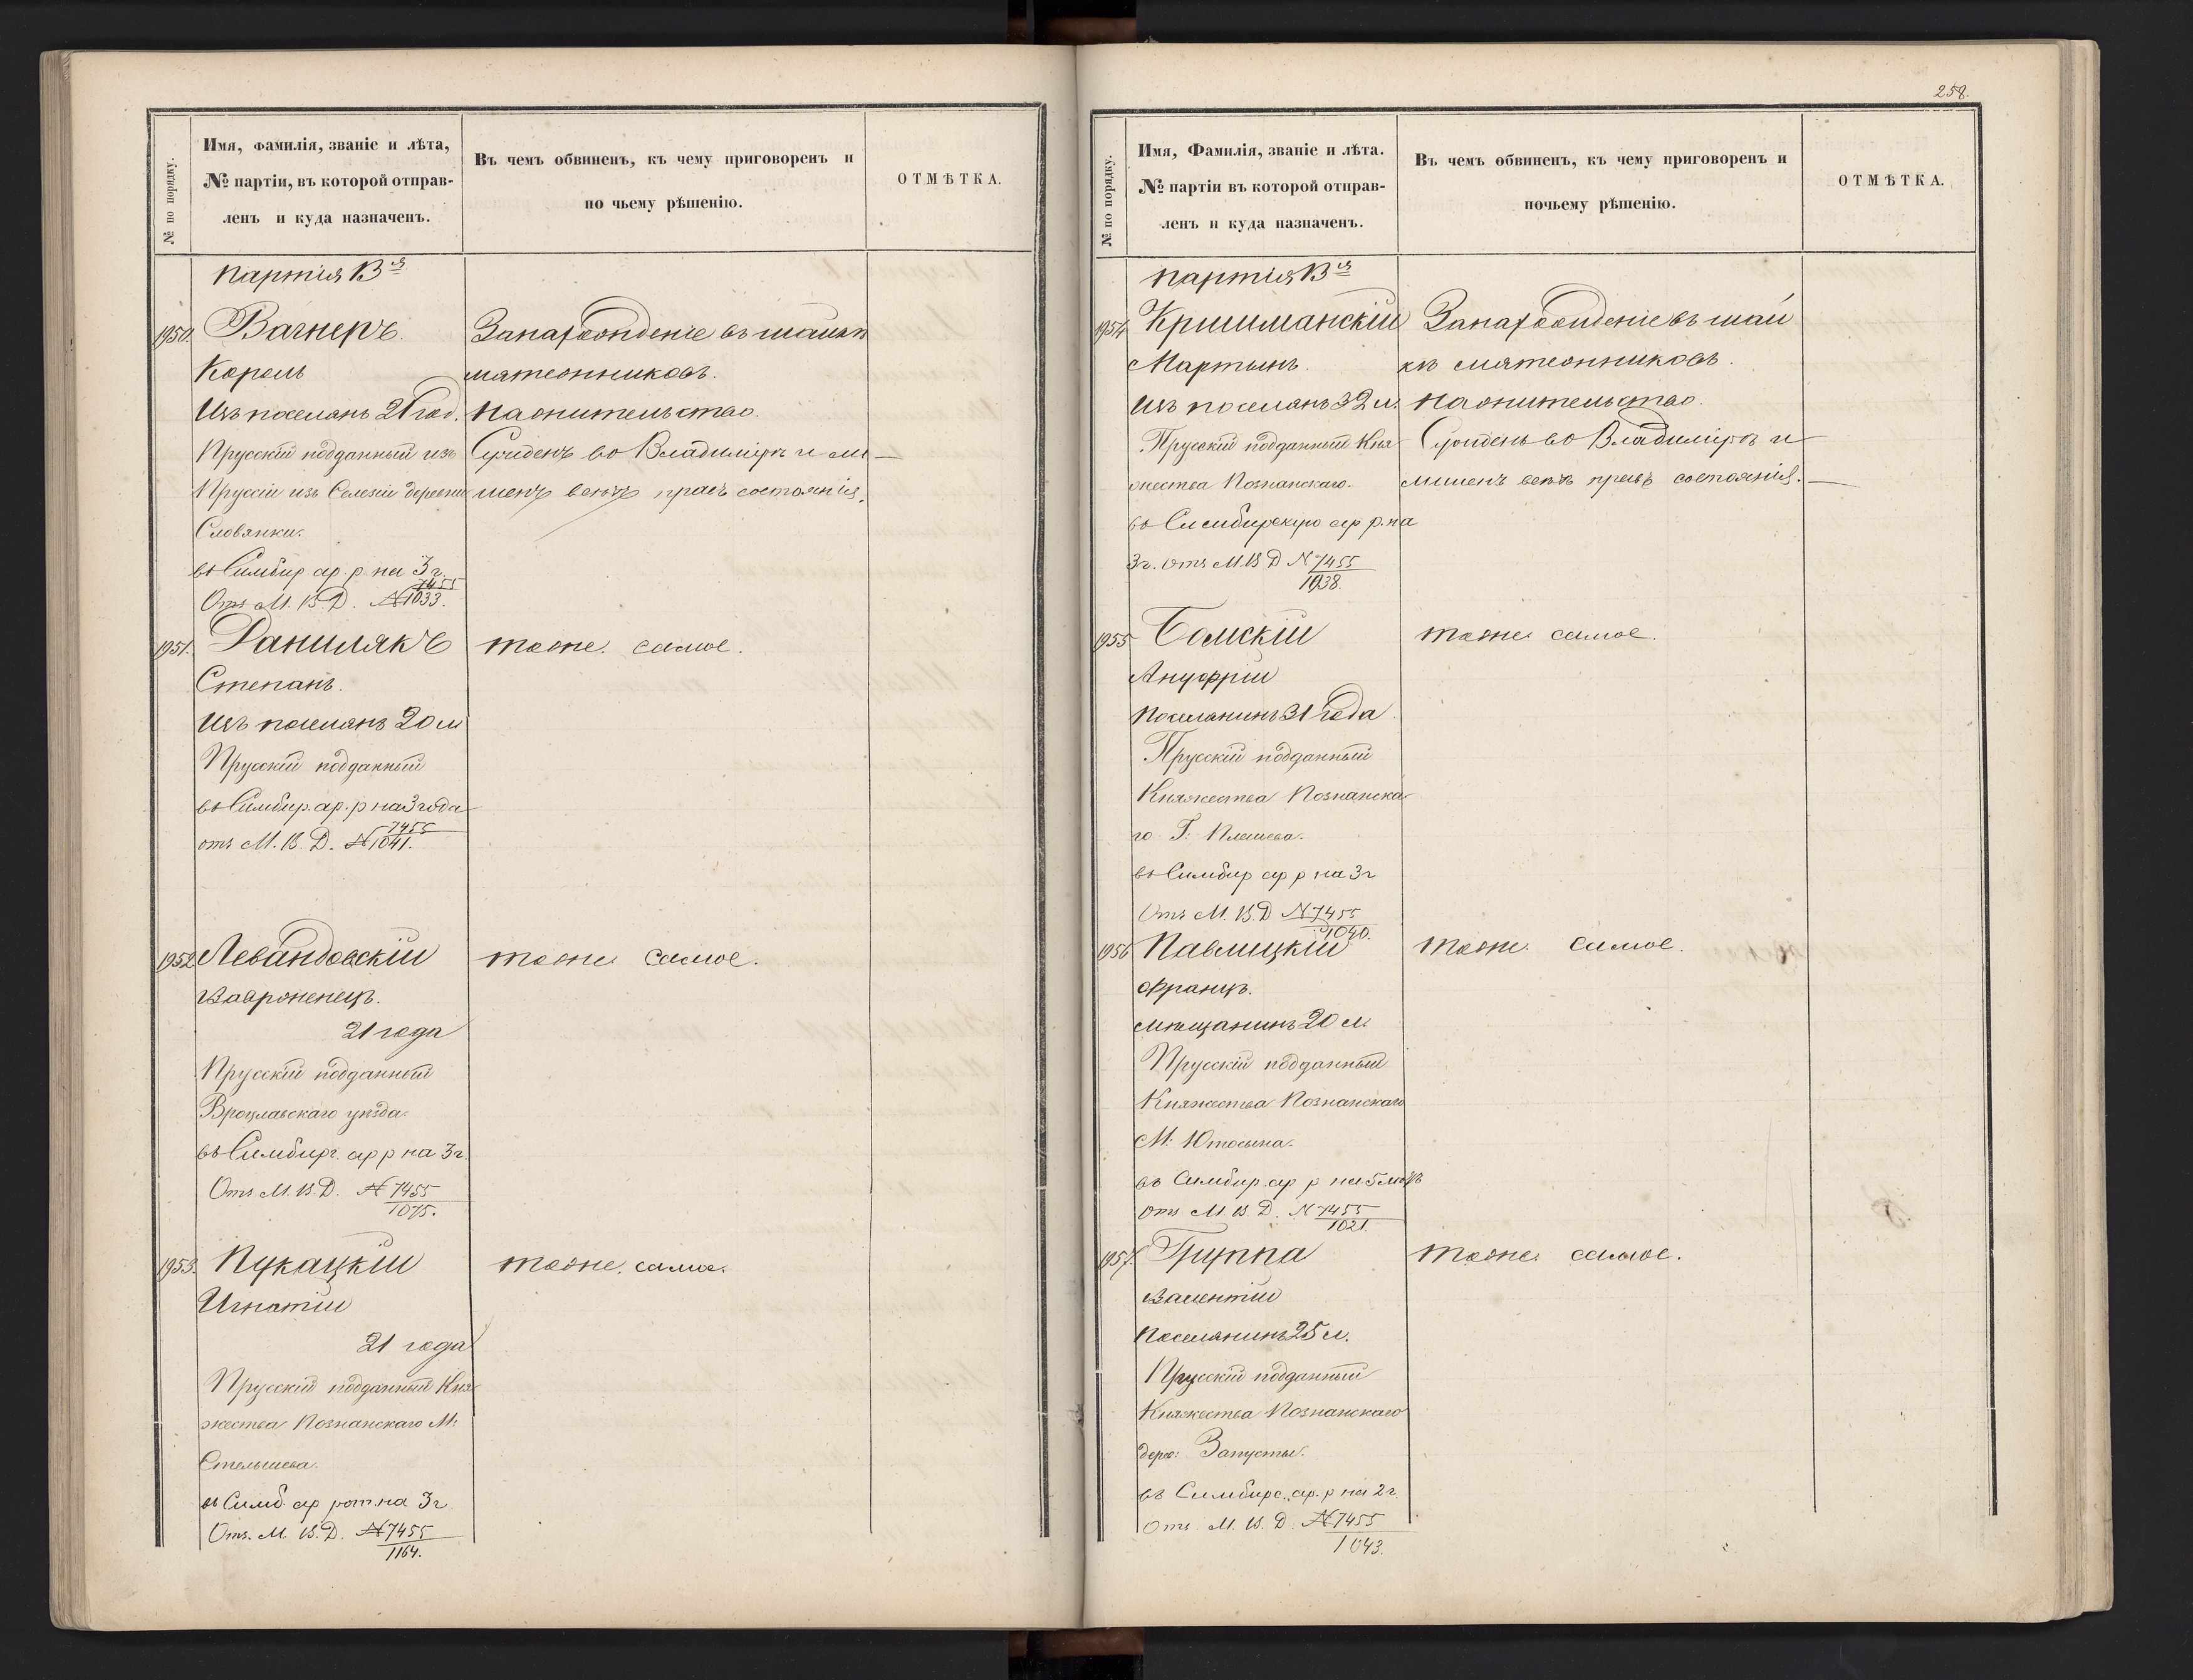 № по порядку.
Имя, фамилія, званіе и лѣта,
№ партіи, въ которой отправ-
ленъ и куда назначенъ.
Въ чемъ обвиненъ, къ чему приговоренъ и
по чьему рѣшенію.
ОТМѢТКА.
Партія 13ая
1950. Вагнеръ.
Кароль
Изъ поселянъ 21 год.
Прусскій подданный изъ
Пруссіи изъ Селезіи деревни
Словянки.
въ Симбир ар. р на 3 г.
Отъ М. В. Д. № 7455
1033.
За нахожденіе въ шайкѣ
мятежниковъ.
На жительство.
Сужденъ во Владимірѣ и ли-
шенъ всѣхъ правъ состоянія.
1951. Данилякъ
Степанъ.
Изъ поселянъ 20 л
Прусскій подданный
въ Симбир. ар. р на 3 года
отъ М. В. Д. № 7455
1041.
тоже самое.
1952 Левандовскій
Вавроненецъ.
21 года
Прусскій подданный
Вроцлавскаго уѣзда.
въ Симбирг. ар р на 3 г.
Отъ М. В. Д. № 7455
1075.
тоже самое.
1953. Пукацкій
Игнатій
21 года
Прусскій подданный Кня-
жества Познанскаго М.
Стельшева.
въ Симб. ар рот. на 3 г
Отъ. М. В. Д. № 7455
1164.
тоже самое.
258.
№ по порядку.
Имя, Фамилія, званіе и лѣта.
№ партіи въ которой отправ-
ленъ и куда назначенъ.
Въ чемъ обвиненъ, къ чему приговоренъ и
почьему рѣшенію.
ОТМѢТКА.
Партія 13ая
1954 Кришманскій
Мартынъ.
Изъ поселянъ 32 л.
Прусскій подданный Кня-
жества Познанскаго.
въ Симбирскую ар р. на
3 г. отъ М. В Д № 7455
1038.
За нахожденіе въ шай
кѣ мятежниковъ.
На жительство.
Сужденъ во Владимірѣ и
лишенъ всѣхъ правъ состоянія.
1955 Бомскій
Ануфрій
Поселянинъ 31 года
Прусскій подданный
Княжества Познанска-
го Г: Плешева.
въ Симбир ар р на 3 г
Отъ М. В. Д № 7455
1040.
тоже самое.
1956 Павлицкій
Францъ.
мѣщанинъ 20 л
Прусскій подданный
Княжества Познанскаго
М: Ютосына.
въ Симбир. ар р на 5 мѣ-цъ
отъ М. В. Д. № 7455
1021.
тоже самое.
1957. Группа
Валентій
Поселянинъ 25 л.
Прусскій подданный
Княжества Познанскаго
дерев: Запусты.
въ Симбирс. ар. р на 2 г.
Отъ М. В. Д. № 7455
1043.
тоже самое.